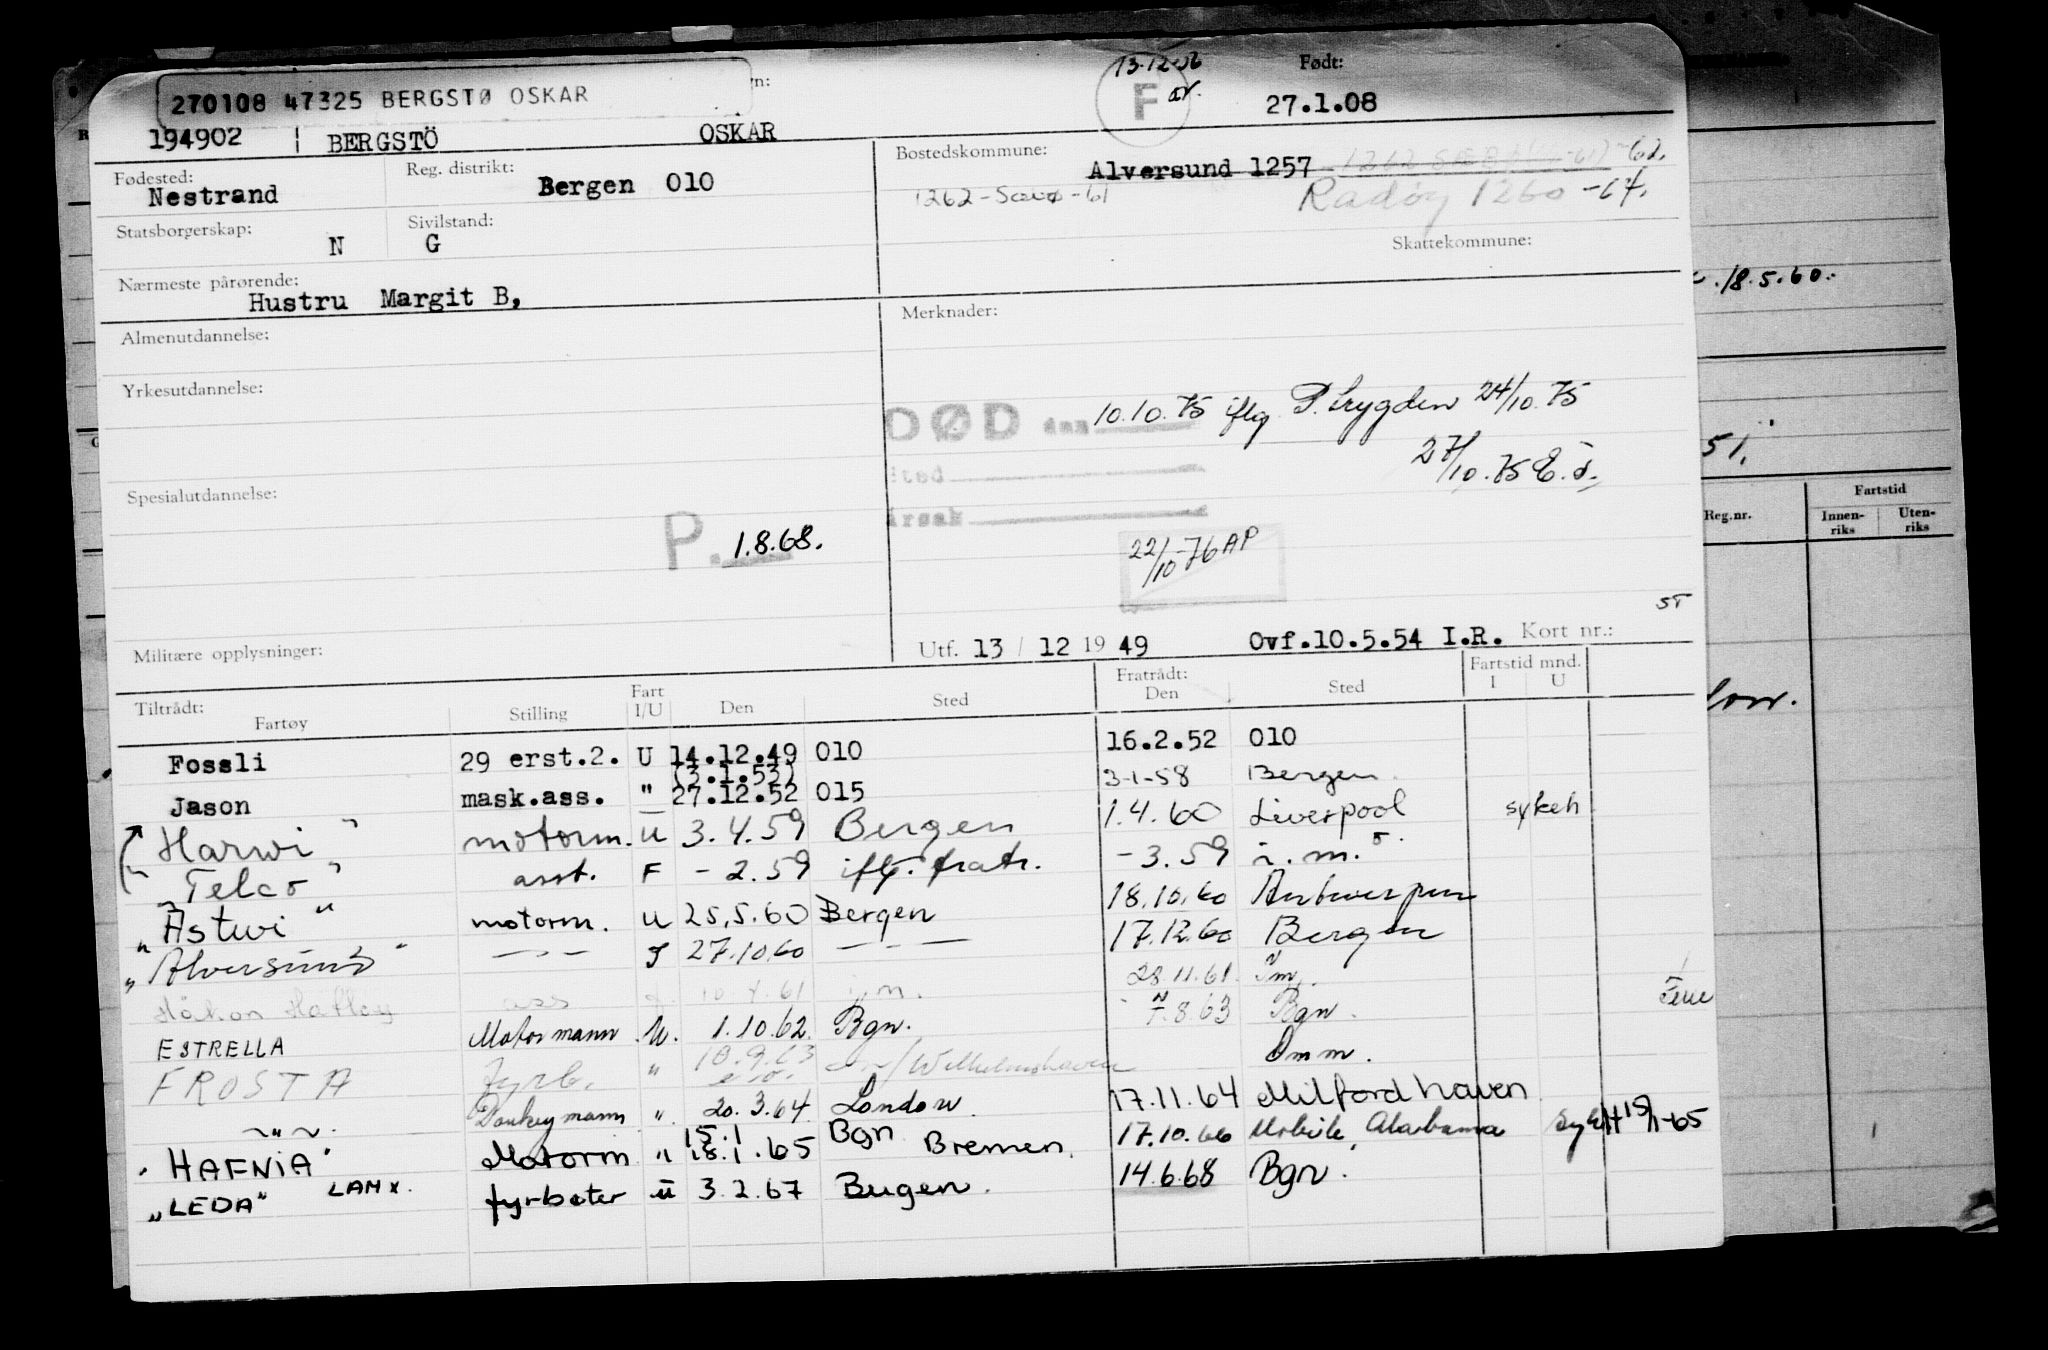 270108 47325 BERGSTØ OSKAR
13-12-56
F
Født:
27.1.08
194902 BERGSTÖ OSKAR
Fødested:
Nestrand
Reg. distrikt:
Bergen 010
Bostedskommune:
Alversund 1257
-62.
1262-Sæbø-61
Radöy 1260 -64.
Statsborgerskap:
N
Sivilstand:
G
Skattekommune:
Nærmeste pårørende:
Hustru Margit B,
.18.5.60.
Almenutdannelse:
Merknader:
Yrkesutdannelse:
DØD den 10.10.75 iflg P. trygden 24/10.75
27/10.75 E.S.
51.
sted
årsak
Spesialutdannelse:
P. 1.8.68.
22/10-76 AP
Reg.nr.
Fartstid
Innen-riks
Uten-riks
ST
Militære opplysninger:
Utf. 13 / 12 19 49 Ovf.10.5.54 I.R. Kort nr.:
Tiltrådt:
Fartøy Stilling Fart I/U Den Sted
Fratrådt:
Den Sted
Fartstid mnd.
I U
Fossli 29 erst.2. U 14.12.49 010 16.2.52 010
(3.1.53)
Jason mask.ass. " 27.12.52 015 3-1-58 Bergen
Harwi " motorm. U 3.4.59 Bergen 1.4.60 Liverpool sykeh
"Telco" asst. F -2.59 iflg. fratr. -3.59 i.m.
"Astwi" motorm. U 25.5.60 Bergen 18.10.60 Antwerpen
"Alversund" —"— I 27.10.60 —"— 17.12.60 Bergen
Håkon ass 61 28.11.61.
ESTRELLA Motormann U. 1.10.62. Bgn. 7.8.63 Bgn. Ferie
FROSTA fyrb. " 10.9.63 Wilhelmshaven Omm.
—"— Donkeymann ". 20.3.64 London 17.11.64 Milford haven
"HAFNIA" Motorm " 15.1 18.1.65 Bgn Bremen. 17.10.66 Mobile, Alabama
"LEDA" LAMX. fyrbøter U 3.2.67 Bergen. 14.6.68 Bgn.